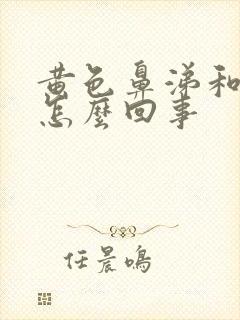 黄色鼻涕和
怎麼回事
任晨鳴